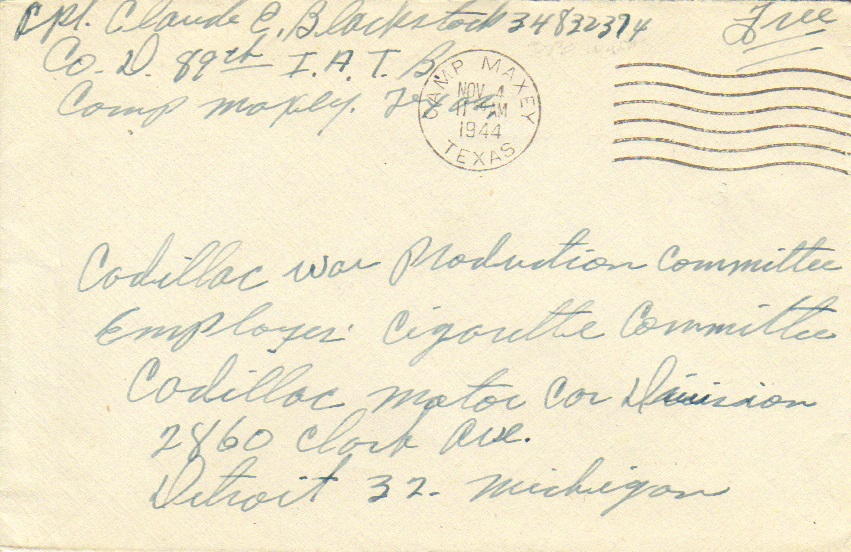 Cpl. Claude C. Blackstock 34832374
Free
Co. D. 89th I.A.T.B.
Camp Maxey. Texas
CAMP MAXEY
NOV 4
11 AM
1944
TEXAS
Cadillac War Production Committee
Employes' Cigarette Committee
Cadillac Motor Car Division
2860 Clark Ave.
Detroit 32. Michigan